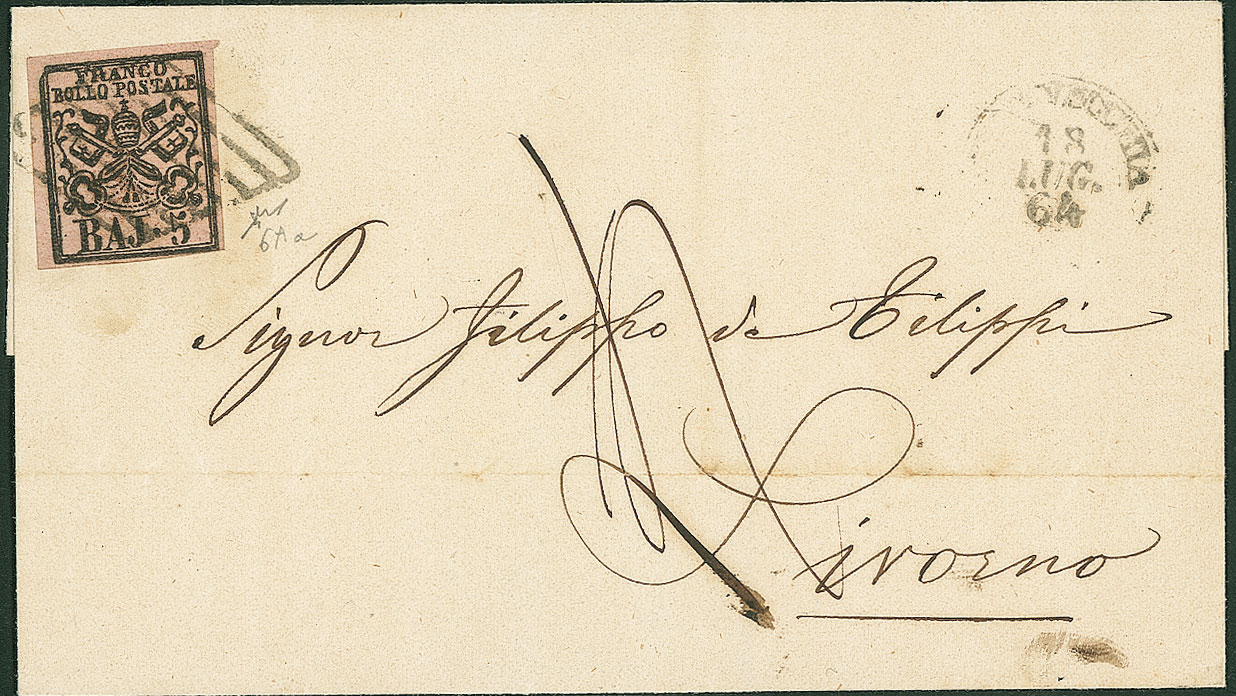 FRANCO
BOLLO POSTALE
BAJ. 5
VECCHIA
18
LUG.
64
6Aa
Signor Filippo de Filippi
Livorno